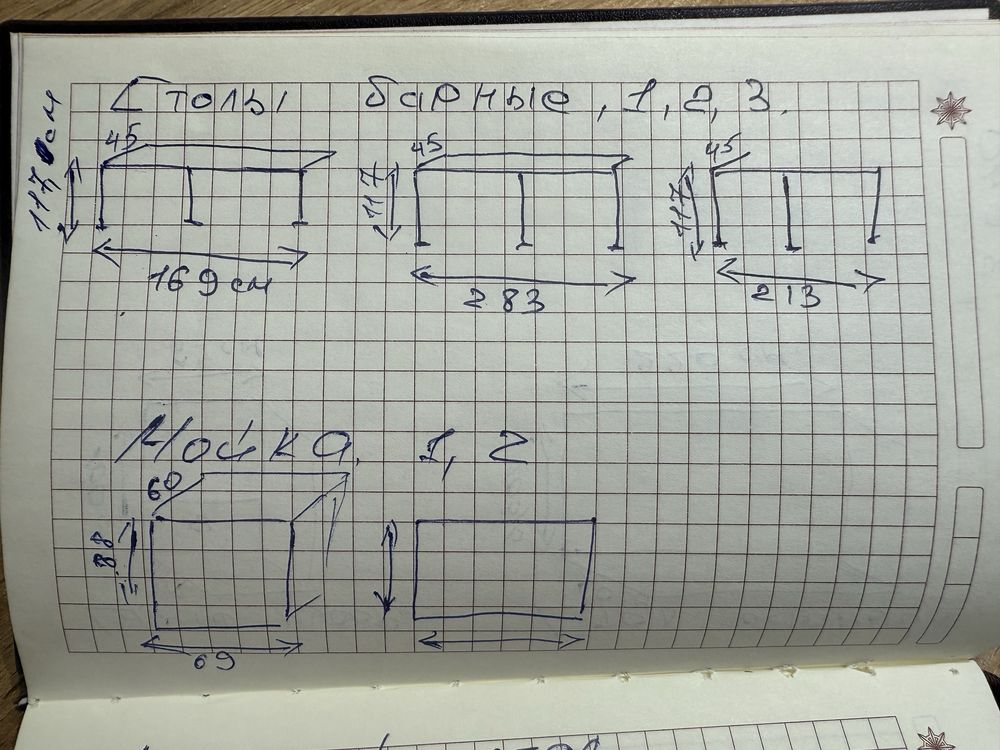 Столы барные, 1, 2, 3.
45 45 45
117см 117 117
169см 283 213
Мойка, 1, 2
60
88
69